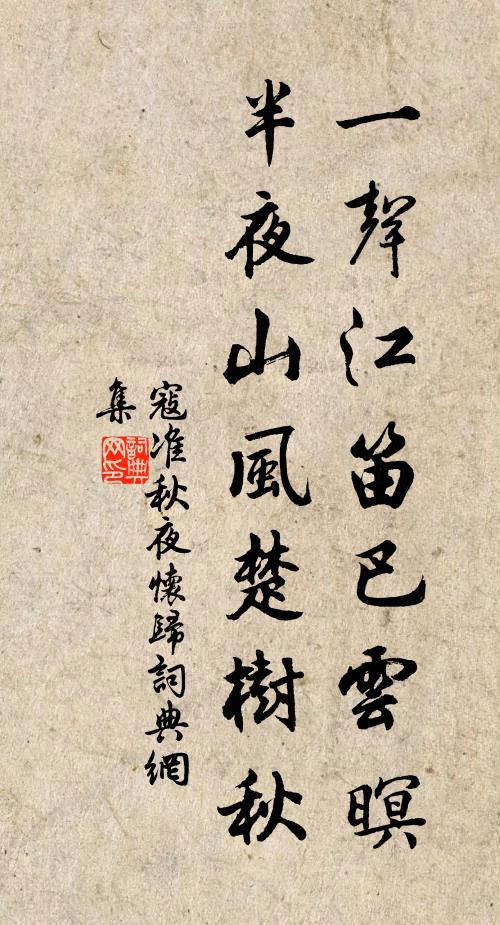 一聲江笛巴雲暝
半夜山風楚樹秋
寇准秋夜懷歸詞典網
集
詞典
网印